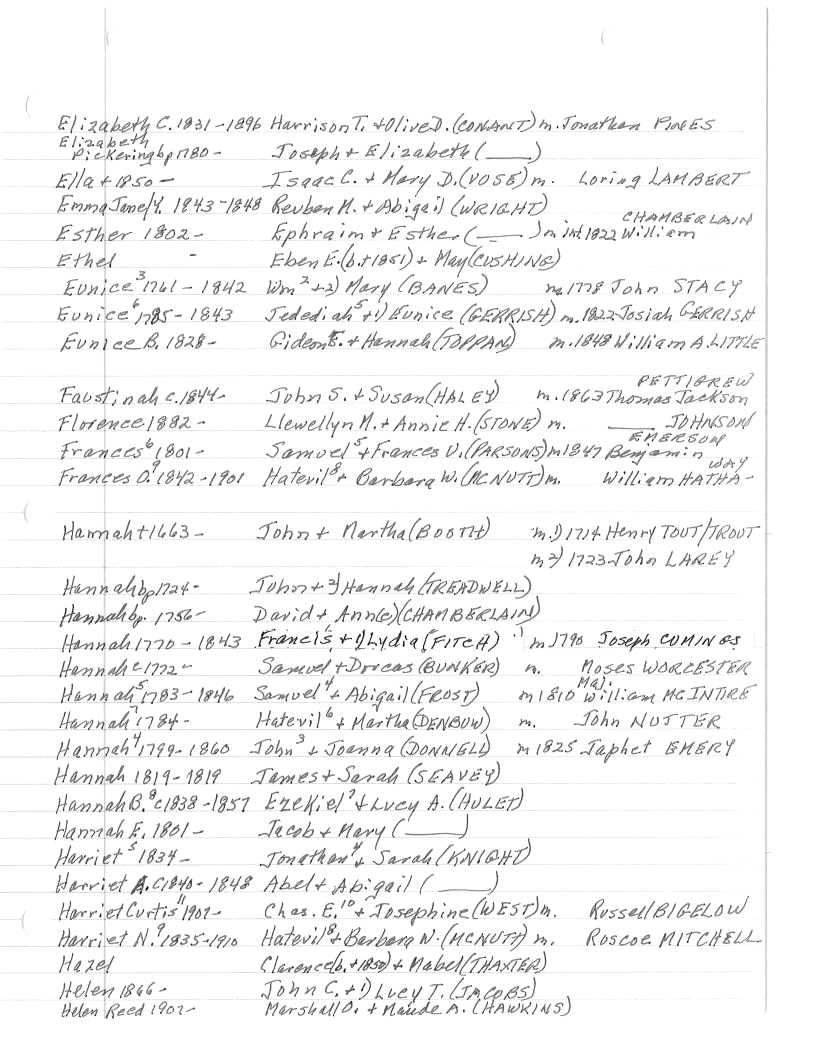 Elizabeth C. 1831-1896 Harrison T. + Olive D. (CONANT) m. Jonathan PINES
Elizabeth
Pickering bp 1780- Joseph + Elizabeth (____)
Ella ± 1850- Isaac C. + Mary D. (VOSE) m. Loring LAMBERT
Emma Jane/Y. 1843-1848 Reuben M. + Abigail (WRIGHT)
CHAMBERLAIN
Esther 1802- Ephraim + Esther (____) m int 1822 William
Ethel - Eben E. (b. ± 1851) + May (CUSHING)
Eunice³ 1761-1842 Wm² + 2) Mary (BANES) m. 1778 John STACY
Eunice⁶ 1785-1843 Jedediah⁵ + 1) Eunice (GERRISH) m. 1822 Josiah GERRISH
Eunice B. 1828- Gideon E. + Hannah (TOPPAN) m. 1848 William A. LITTLE
PETTIGREW
Faustinah c. 1844- John S. + Susan (HALEY) m. 1863 Thomas Jackson
Florence 1882- Llewellyn M. + Annie H. (STONE) m. ____ JOHNSON
EMERSON
Frances⁶ 1801- Samuel⁵ + Frances U. (PARSONS) m 1847 Benjamin
WAY
Frances O.⁹ 1842-1901 Hatevil⁸ + Barbara W. (MCNUTT) m. William HATHA-
Hannah ± 1663- John + Martha (BOOTH) m. 1) 1714 Henry TOUT/TROUT
m 2) 1723 John LAREY
Hannah bp 1724- John + 2) Hannah (TREADWELL)
Hannah bp. 1756- David + Ann(e) (CHAMBERLAIN)
Hannah 1770-1843 Francis + 1) Lydia (FITCH) m 1790 Joseph CUMINGS
Hannah c 1772- Samuel + Dorcas (BUNKER) m. Moses WORCESTER
Maj.
Hannah⁵ 1783-1846 Samuel⁴ + Abigail (FROST) m 1810 William MCINTIRE
Hannah⁷ 1784- Hatevil⁶ + Martha (DENBOW) m. John NUTTER
Hannah⁴ 1799-1860 John³ + Joanna (DONNELL) m 1825 Japhet EMERY
Hannah 1819-1819 James + Sarah (SEAVEY)
Hannah B.⁸ c 1838-1857 Ezekiel⁷ + Lucy A. (HULET)
Hannah E. 1801- Jacob + Mary (____)
Harriet⁵ 1834- Jonathan⁴ + Sarah (KNIGHT)
Harriet A. c 1840-1848 Abel + Abigail (____)
Harriet Curtis¹¹ 1902- Chas. E.¹⁰ + Josephine (WEST) m. Russell BIGELOW
Harriet N.⁹ 1835-1910 Hatevil⁸ + Barbara W. (MCNUTT) m. Roscoe MITCHELL
Hazel Clarence (b. ± 1850) + Mabel (THAXTER)
Helen 1866- John C. + 1) Lucy T. (JACOBS)
Helen Reed 1902- Marshall O. + Maude A. (HAWKINS)